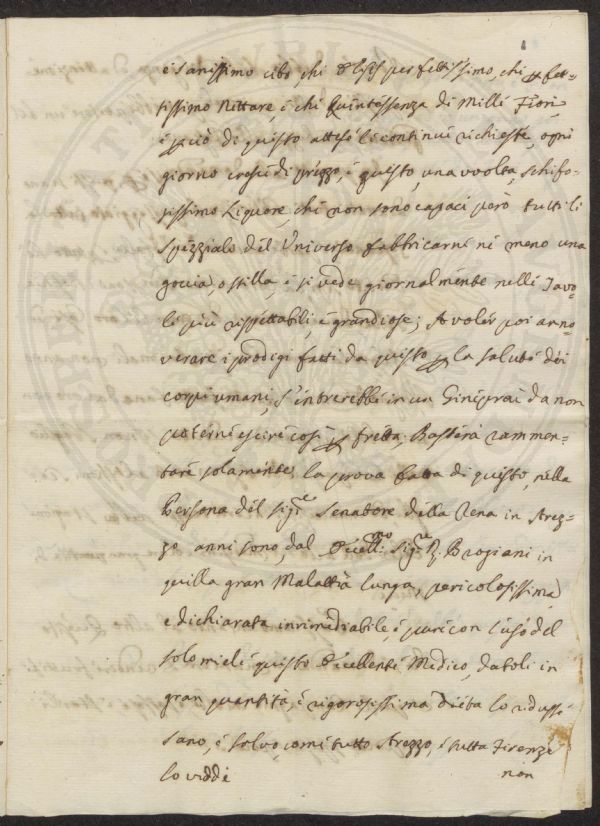 è sanissimo cibo, chi perfettissimo, chi perfet=
tissimo Nettare, è chi Quintessenza di Mille Fiori,
è perciò di questo attese le continue richieste, ogni
giorno cresce di prezzo, è questo, una voolta, schifo=
sissimo Liquore, che non sono capaci però tutti li
Spezziali dell Universo fabbricarne ne meno una
goccia, o stilla, è si vede giornalmente nelle Tavo=
le più rispettabili, è grandiose; A voler poi anno=
verare i prodigi fatti da questo per la salute dei
corpi umani, s'entrerebbe in un Gineprai da non
poterne escire così per fretta, Basterà rammen=
tare solamente la prova fatta di questo, nella
Persona del Sigre Senatore della Rena in Arez=
zo anni sono, dal Eccellmo Sigre Brogiani in
quella gran Malattia lunga, pericolosissima,
e dichiarata inrimediabile, è pure con l'uso del
solo miele questo Eccellente Medico, datoli in
gran quantità, è rigorosissima dieta lo ridusse
sano, è salvo, come tutto Arezzo, è tutta Firenze
lo vidde
non